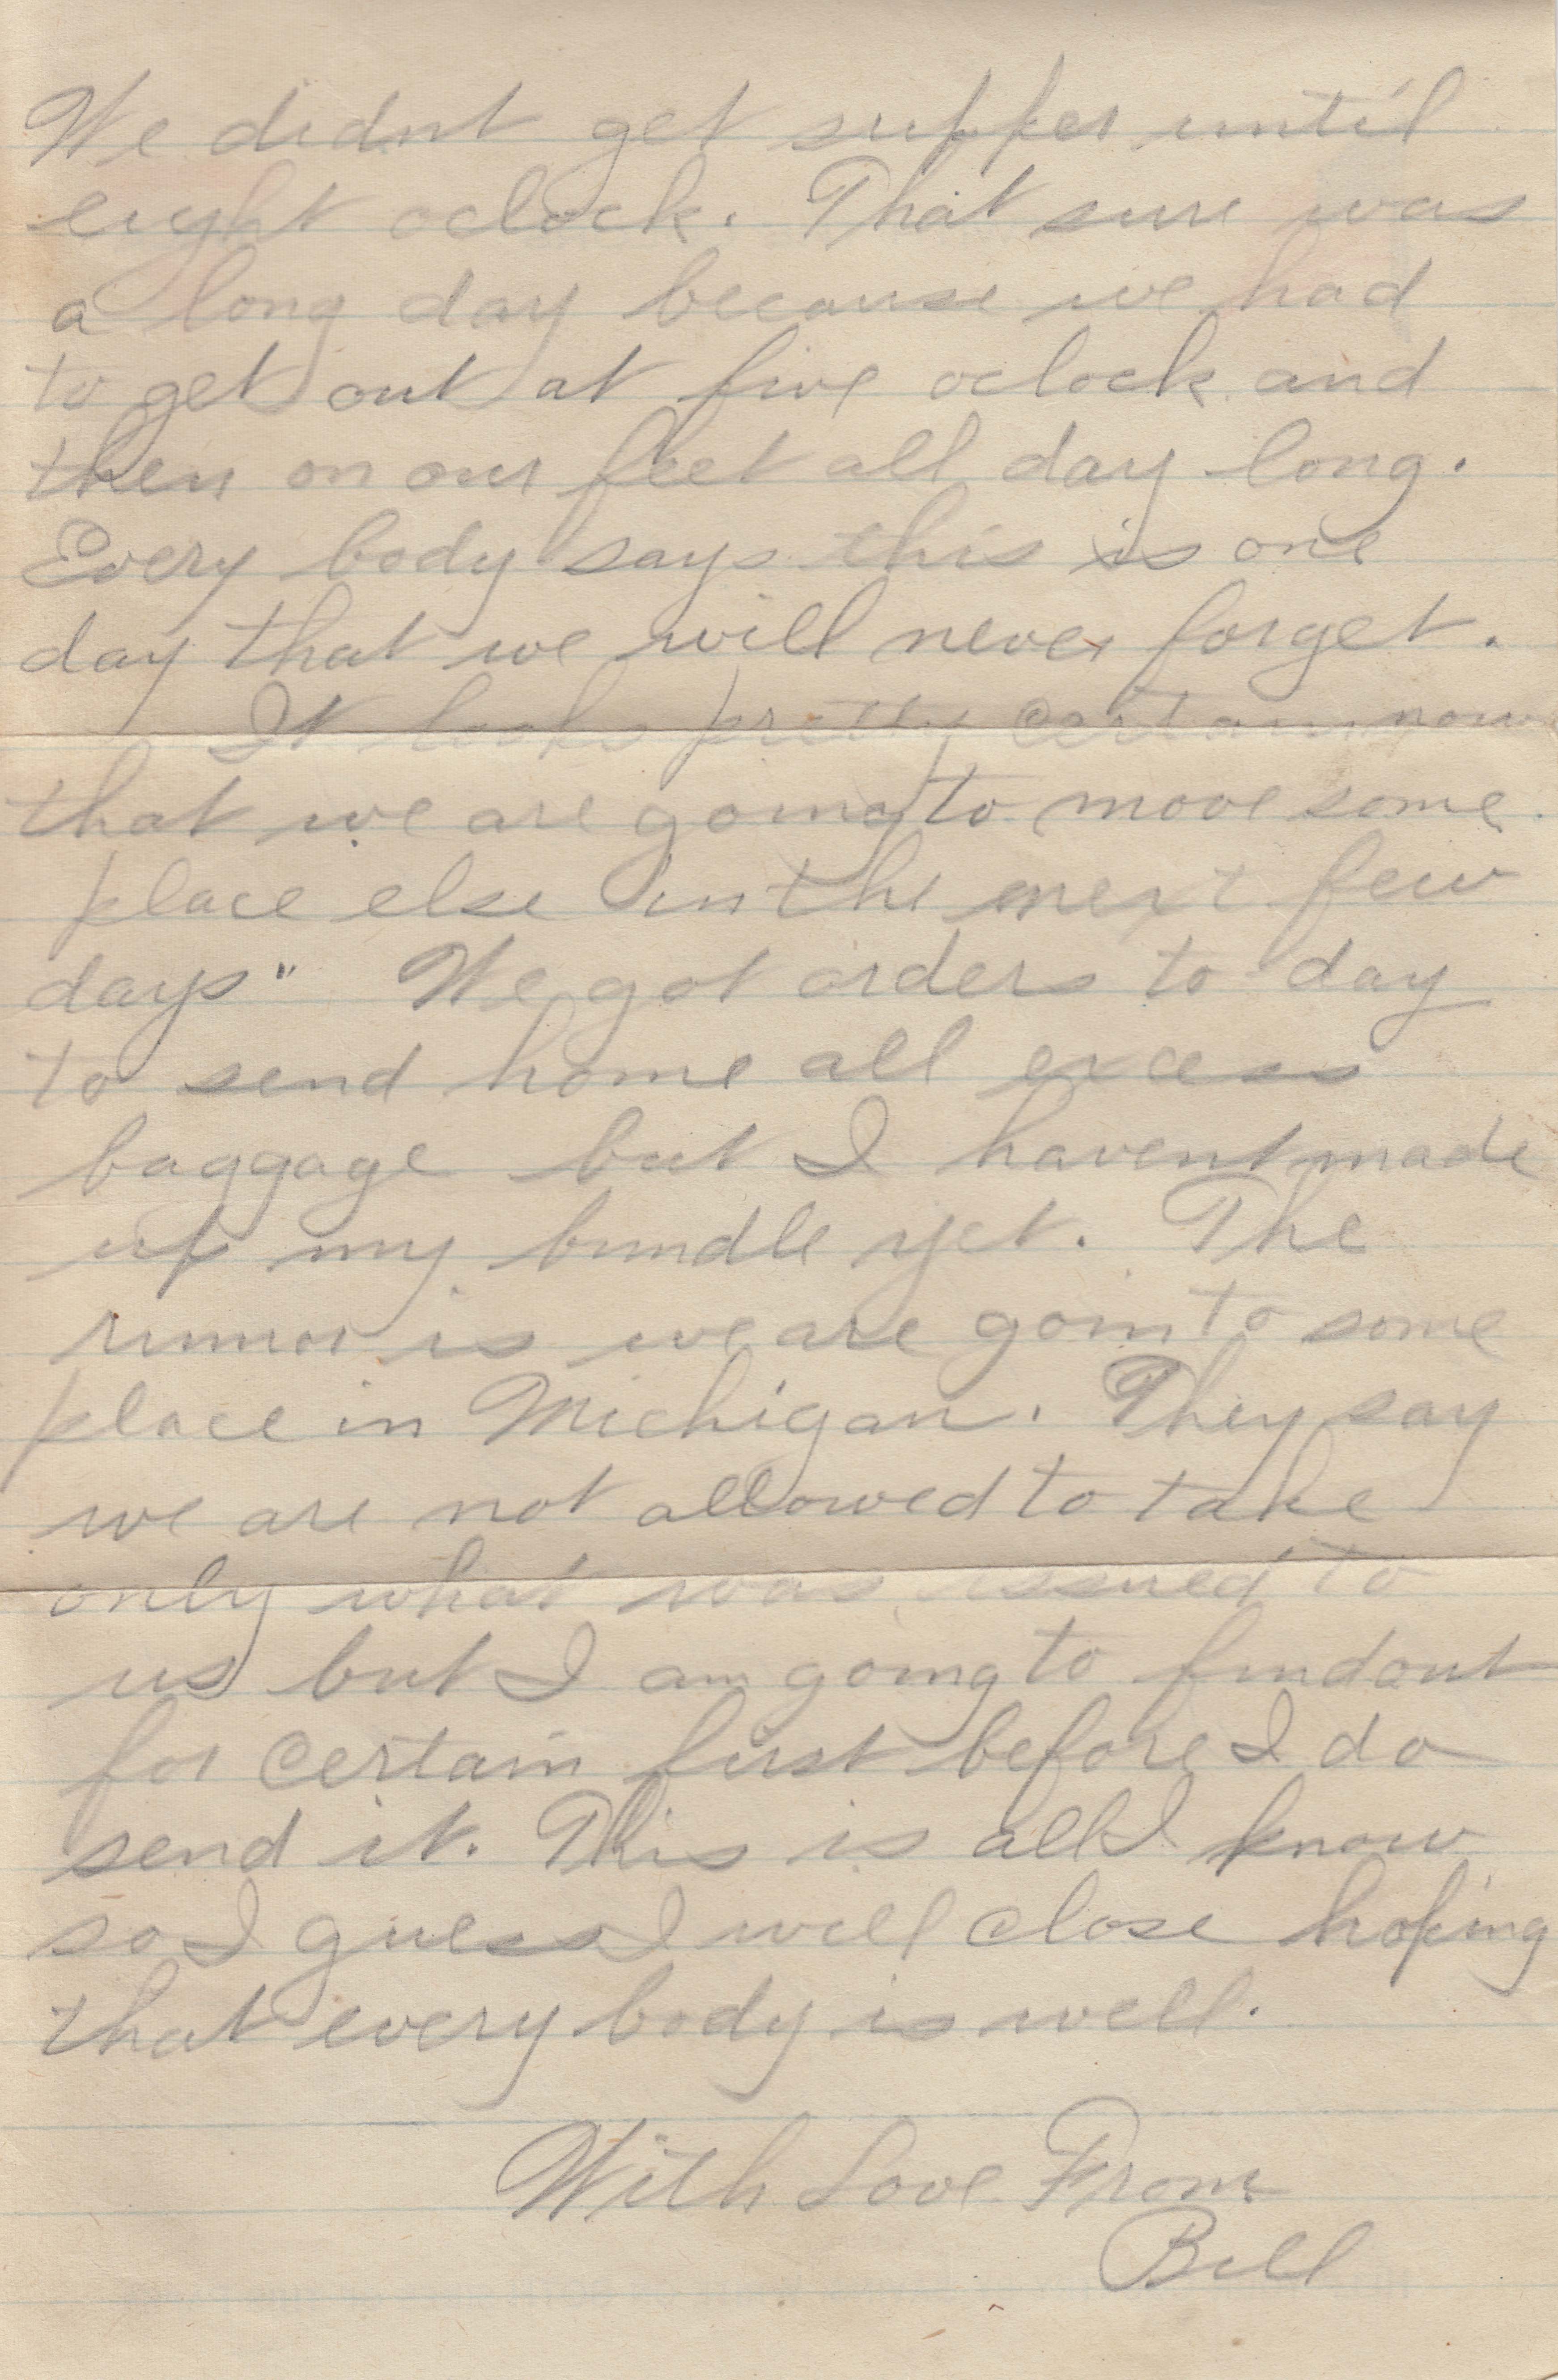 We didnt get supper until
eight oclock. That sure was
a long day because we had
to get out at five oclock and
then on our feet all day long.
Every body says this is one
day that we will never forget.
It looks pretty certain now
that we are going to move some
place else in the next few
days" We got orders to day
to send home all excess
baggage but I havent made
up my bundle yet. The
rumor is we are goin to some
place in Michigan. They say
we are not allowed to take
only what was issued to
us but I am going to find out
for certain first before I do
send it. This is all I know
so I guess I will close hoping
that every body is well.
With Love From
Bill